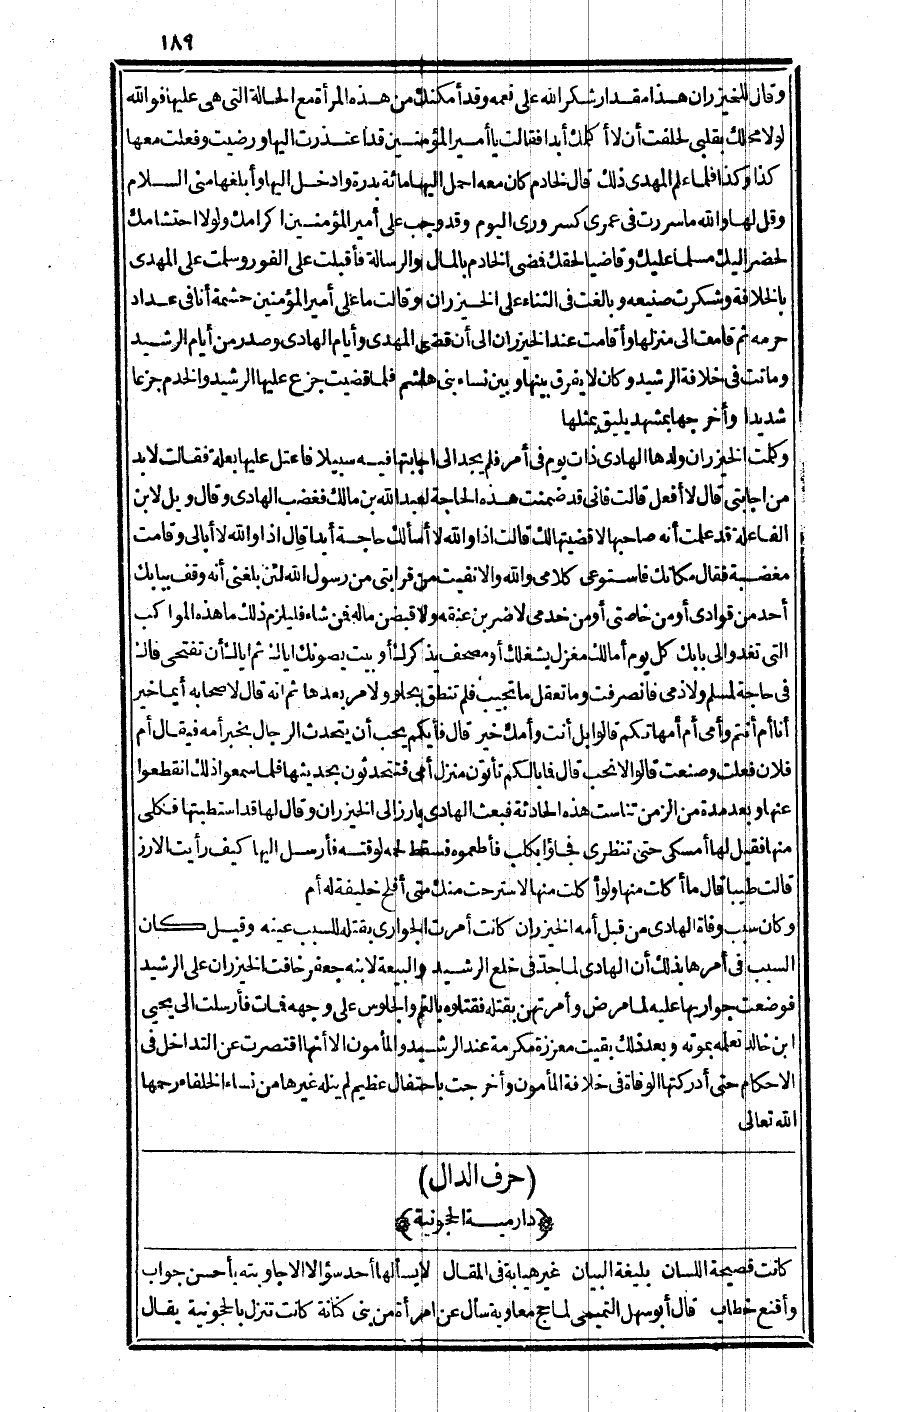 ١٨٩
وقال للخيزران هذا مقدار شكر الله على نعمه وقد أمكنك من هذه المرأة مع الحالة التي هي عليها فوالله
لولا محلك بقلبي لحلفت أن لا أكلمك أبدا فقالت يا أمير المؤمنين قد اعتذرت اليها ورضيت وفعلت معها
كذا وكذا فلما علم المهدى ذلك قال لخادم كان معه احمل اليها مائة بدرة وادخل اليها وأبلغها منى السلام
وقل لها والله ما سررت في عمرى كسرورى اليوم وقد وجب على أمير المؤمنين اكرامك ولولا احتشامك
لحضر اليك مسلما عليك وقاضيا لحقك فمضى الخادم بالمال والرسالة فأقبلت على الفور وسلمت على المهدى
بالخلافة وشكرت صنيعه وبالغت في الثناء على الخيزران وقالت ما على أمير المؤمنين حشمة أنا فى عداد
حرمه ثم قامت الى منزلها وأقامت عند الخيزران الى أن قضى المهدى وأيام الهادى وصدر من أيام الرشيد
وماتت فى خلافة الرشيد وكان لا يفرق بينها وبين نساء بنى هاشم فلما قضيت جزع عليها الرشيد والخدم جزعا
شديدا وأخرجها بمشهد يليق بمثلها
وكلمت الخيزران ولدها الهادى ذات يوم فى أمر فلم يجد الى اجابتها فيه سبيلا فاعتل عليها بعلة فقالت لابد
من اجابتى قال لا أفعل قالت فانى قد ضمنت هذه الحاجة لعبد الله بن مالك فغضب الهادى وقال ويل لابن
الفاعلة قد علمت أنه صاحبها لا قضيتها لك قالت اذا والله لا أسألك حاجة أبدا قال اذا والله لا أبالى وقامت
مغضبة فقال مكانك فاستوعى كلامى والله والا نفيت من قرابتى من رسول الله لئن بلغنى أنه وقف ببابك
أحد من قوادى أو من خاصتى أو من خدمى لاضربن عنقه ولا قبضن ماله فمن شاء فليلزم ذلك ما هذه المواكب
التى تغدو الى بابك كل يوم أمالك مغزل يشغلك أو مصحف يذكرك أو بيت يصونك اياك ثم اياك أن تفتحى فاك
فى حاجة لمسلم ولا ذمى فانصرفت وما تعقل ما تجيب فلم تنطق بحلو ولا مر بعدها ثم انه قال لاصحابه أيما خير
أنا أم أنتم وأمى أم أمهاتكم قالوا بل أنت وأمك خير قال فأيكم يحب أن يتحدث الرجال بخبر أمه فيقال أم
فلان فعلت وصنعت قالوا لا نحب قال فما بالكم تأتون منزل أمى فتتحدثون بحديثها فلما سمعوا ذلك انقطعوا
عنها وبعد مدة من الزمن تناست هذه الحادثة فبعث الهادى بارز الى الخيزران وقال لها قد استطبتها فكلى
منها فقيل لها أمسكى حتى تنظرى فجاؤا بكلب فأطعموه فسقط لحمه لوقته فأرسل اليها كيف رأيت الارز
قالت طيبا قال ما أكلت منها ولو أكلت منها لاسترحت منك متى أفلح خليفة له أم
وكان سبب وفاة الهادى من قبل أمه الخيزران كانت أمرت الجوارى بقتله للسبب عينه وقيل كان
السبب فى أمرها بذلك أن الهادى لما جد فى خلع الرشيد والبيعة لابنه جعفر خافت الخيزران على الرشيد
فوضعت جواريها عليه لما مرض وأمرتهن بقتله فقتلوه بالغم والجلوس على وجهه فمات فأرسلت الى يحيى
ابن خالد تعلمه بموته وبعد ذلك بقيت معززة مكرمة عند الرشيد والمأمون الا أنها اقتصرت عن التداخل فى
الاحكام حتى أدركتها الوفاة فى خلافة المأمون وأخرجت باحتفال عظيم لم ينله غيرها من نساء الخلفاء رحمها
الله تعالى
(حرف الدال)
﴿دارمية الحجونية﴾
كانت فصيحة اللسان بليغة البيان غير هيابة فى المقال لا يسألها أحد سؤالا الا جاوبته بأحسن جواب
وأقنع خطاب قال أبو سهل التميمى لما حج معاوية سأل عن امرأة من بنى كنانة كانت تنزل بالحجونية يقال